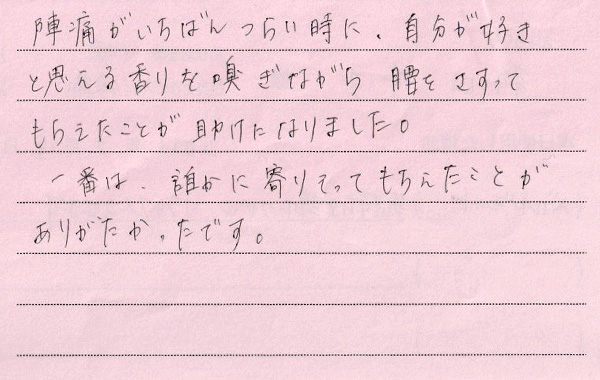 陣痛がいちばんつらい時に、自分が好き
と思える香りを嗅ぎながら 腰をさすって
もらえたことが助けになりました。
一番は、誰かに寄りそってもらえたことが
ありがたかったです。